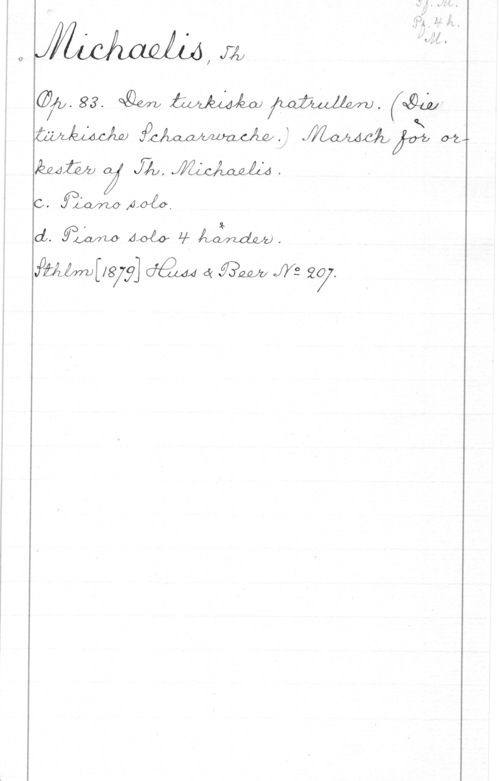 Pf. M.
Pf. 4 h.
M.
Michaelis, Th
Op. 83. Den turkiska patrullen. (Die
türkische Schaarwache.) Marsch för or-
kester af Th. Michaelis.
c. Piano solo.
d. Piano solo 4 händer.
Sthlm [1879] Huss & Beer Nº 207.